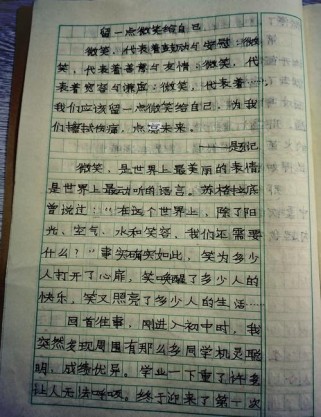 留一点微笑给自己
微笑，代表着鼓励与安慰；微
笑，代表着善意与友情；微笑，代
表着宽容与谦虚；微笑，代表着……
我们应该留一点微笑给自己，为我
们擦拭伤痛，点亮未来。
——题记
微笑，是世界上最美丽的表情
是世界上最动听的语言。苏格拉底
曾说过：“在这个世界上，除了阳
光、空气、水和笑容，我们还需要
什么？”事实确实如此，笑为多少
人打开了心扉，笑唤醒了多少人的
快乐，笑又照亮了多少人的生活……
回首往事，刚进入初中时，我
突然发现周围有那么多同学机灵聪
明，成绩优异，学业一下重了许多
让人无法呼吸。终于迎来了第一次